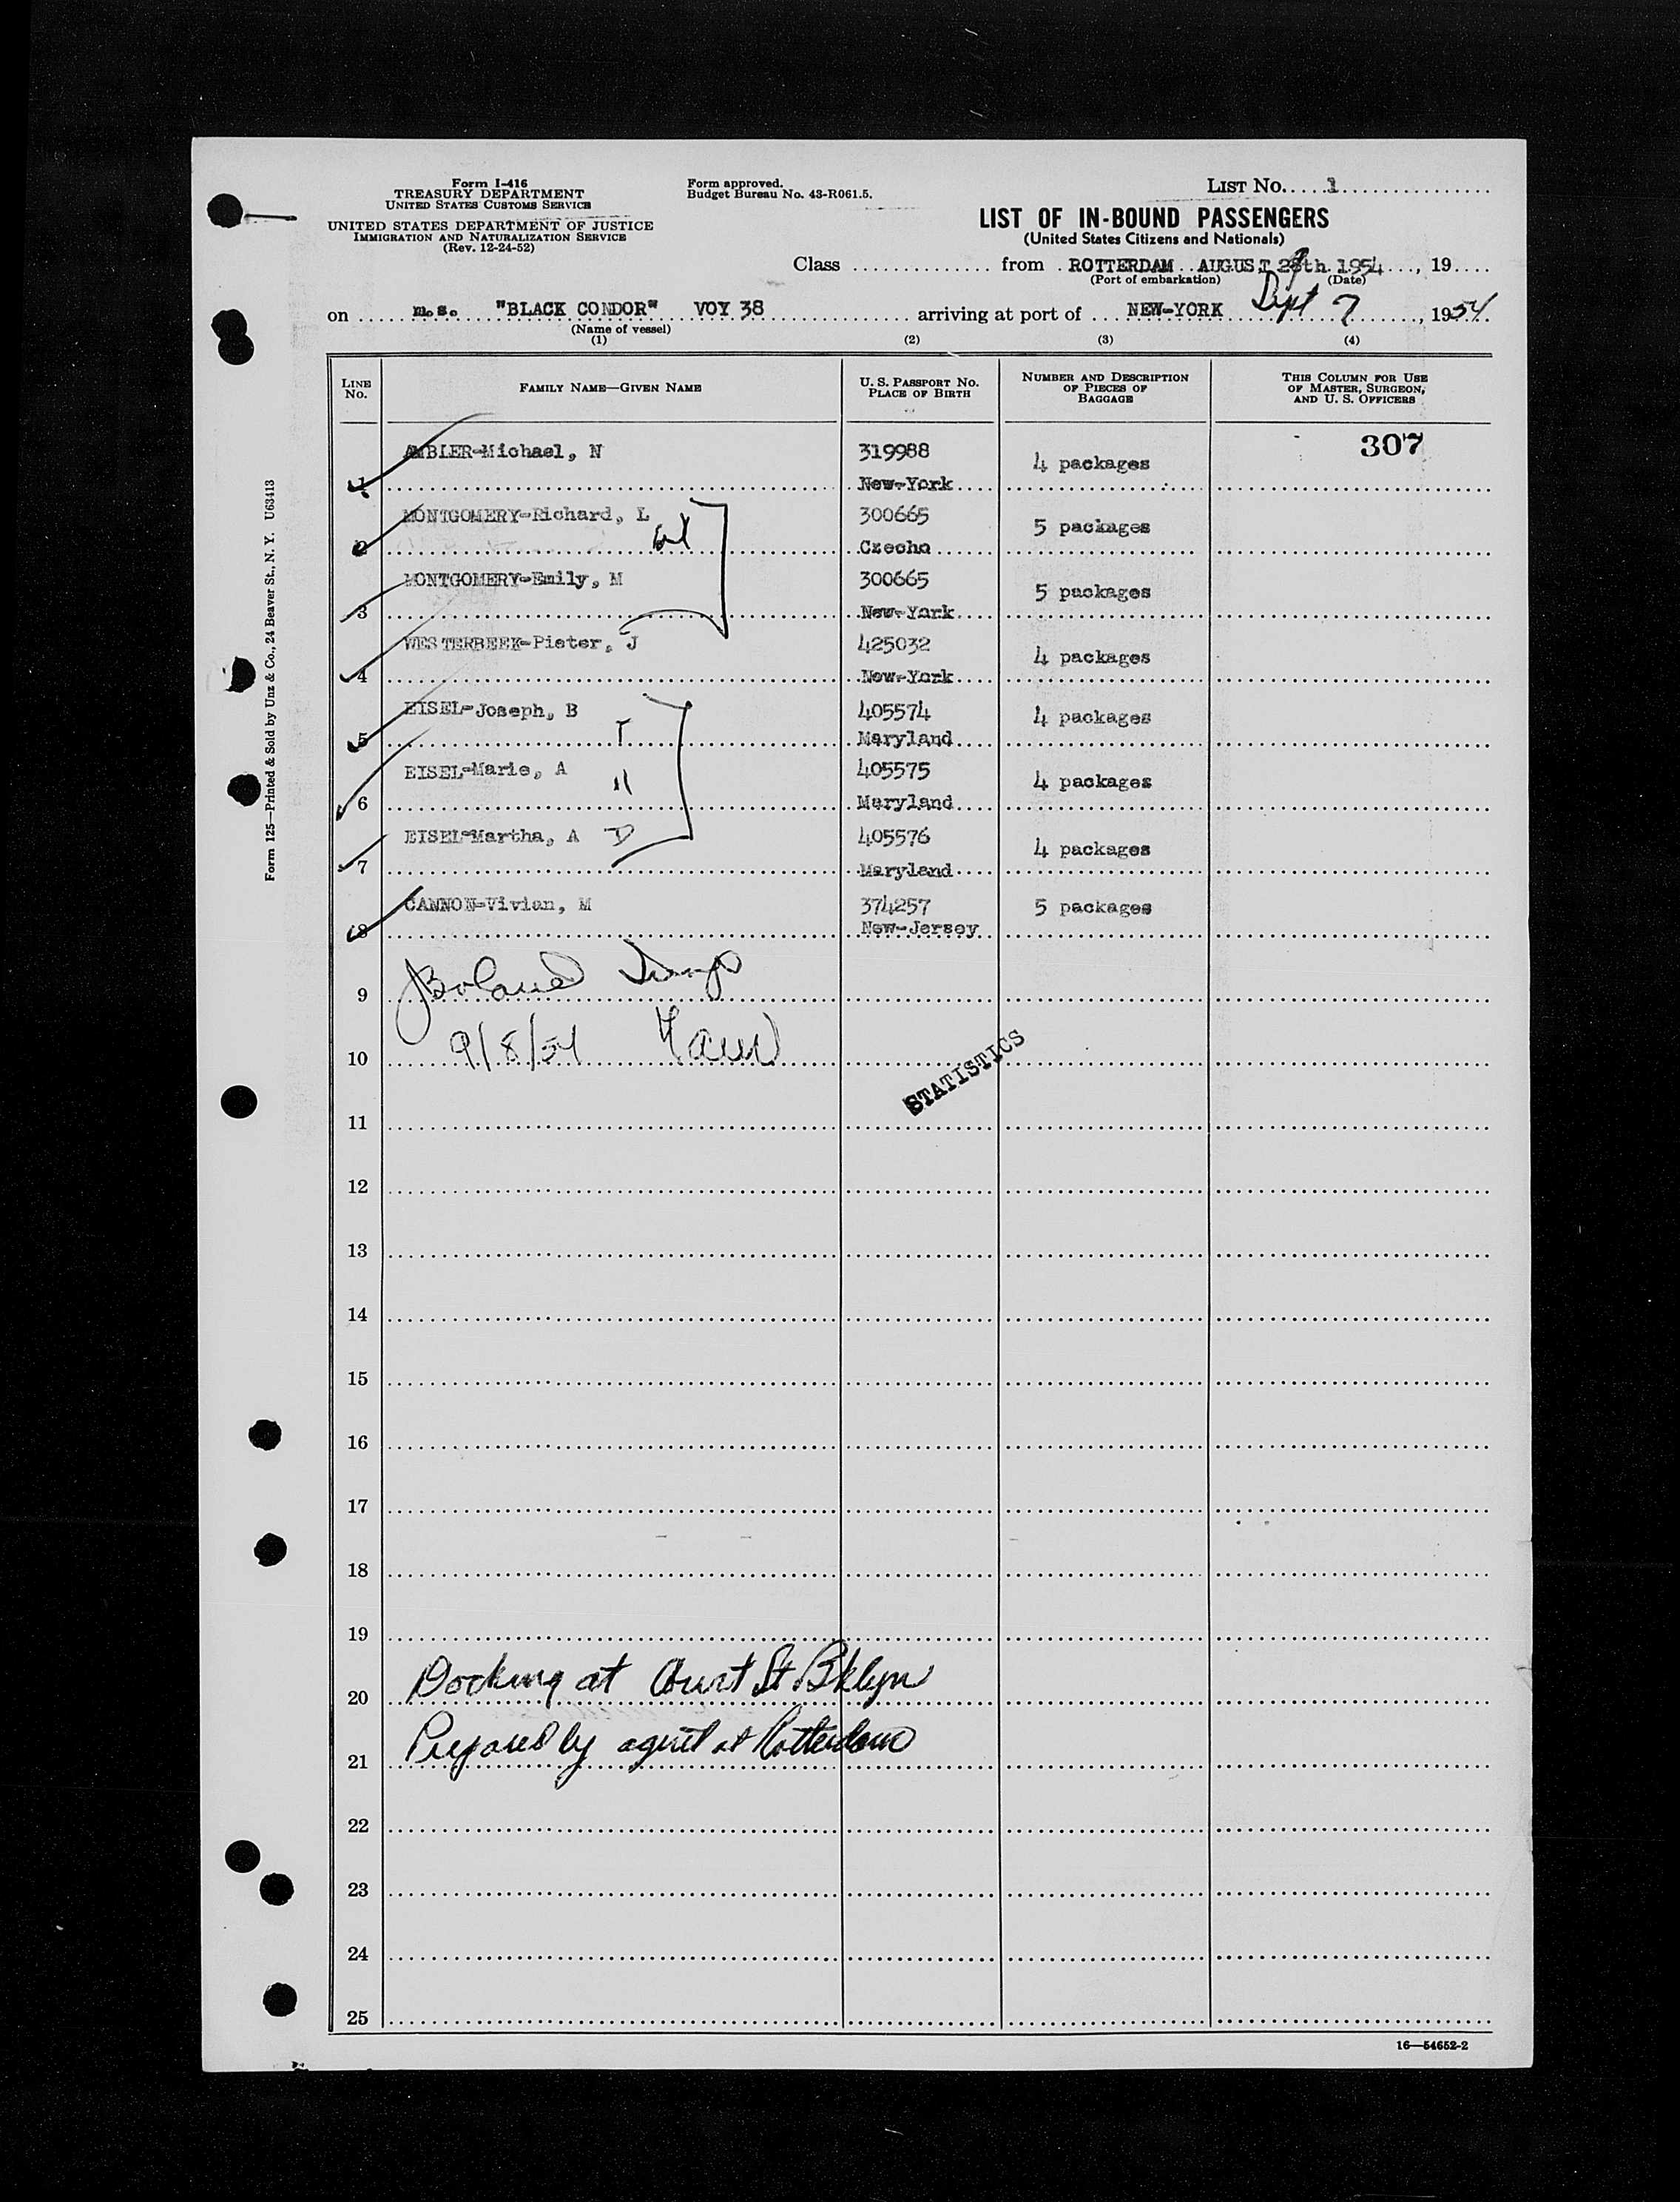 Form I-416
TREASURY DEPARTMENT
UNITED STATES CUSTOMS SERVICE
UNITED STATES DEPARTMENT OF JUSTICE
IMMIGRATION AND NATURALIZATION SERVICE
(Rev. 12-24-52)
Form approved.
Budget Bureau No. 43-R061.5.
LIST NO. 1
LIST OF IN-BOUND PASSENGERS
(United States Citizens and Nationals)
Class from ROTTERDAM AUGUST 28th 1954, 19
(Port of embarkation) (Date)
on m.s. "BLACK CONDOR" VOY 38 arriving at port of NEW-YORK Sept 7, 1954
(Name of vessel)
(1) (2) (3) (4)
LINE NO. FAMILY NAME—GIVEN NAME U. S. PASSPORT NO. PLACE OF BIRTH NUMBER AND DESCRIPTION OF PIECES OF BAGGAGE THIS COLUMN FOR USE OF MASTER, SURGEON, AND U. S. OFFICERS
307
1 AMBLER-Michael, N 319988 New-York 4 packages
2 MONTGOMERY-Richard, L 300665 Czecho 5 packages
3 MONTGOMERY-Emily, M 300665 New-York 5 packages
4 WESTERBEEK-Pieter, J 425032 New-York 4 packages
5 EISEL-Joseph, B 405574 Maryland 4 packages
6 EISEL-Marie, A 405575 Maryland 4 packages
7 EISEL-Martha, A 405576 Maryland 4 packages
8 CANNON-Vivian, M 374257 New-Jersey 5 packages
9 Boland
10 9/8/54
STATISTICS
11
12
13
14
15
16
17
18
19
20 Docking at Court St Bklyn
21 Prepared by agent at Rotterdam
22
23
24
25
16—54652-2
Form 125—Printed & Sold by Unz & Co., 24 Beaver St., N. Y. U63413